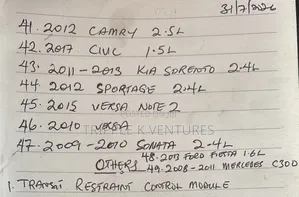 31/7/2026
41. 2012 CAMRY 2.5L
42. 2017 CIVIC 1.5L
43. 2011-2013 KIA SORENTO 2.4L
44. 2012 SPORTAGE 2.4L
45. 2015 VERSA NOTE 2
46. 2010 VERSA
VENTURES
47. 2009-2010 SONATA 2.4L
OTHERS 48. 2013 FORD FIESTA 1.6L
49. 2008-2011 MERCEDES C300
1. TRANSIT RESTRAINT CONTROL MODULE